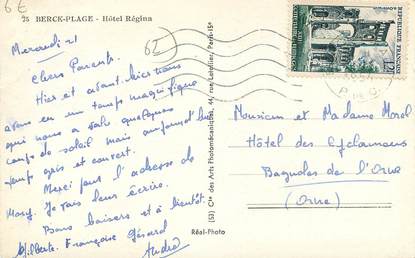 6€
75 BERCK-PLAGE - Hôtel Régina
6E
Mercredi 21
Chers Parents
Hier et avant-hier nous
avons eu un temps magnifique
qui nous a valu quelques
coups de soleil mais aujourd'hui
temps gris et couvert.
Merci pour l'adresse de
Je vais leur écrire.
Bons baisers et à bientôt.
Gilberte. Françoise Gérard
André
(53) Cie des Arts Photomécaniques, 44, rue Letellier, Paris-15e
Réal-Photo
REPUBLIQUE FRANÇAISE
12F
POSTES
Monsieur et Madame Morel
Hôtel des Cyclamens
Bagnoles de l'Orne
(Orne)